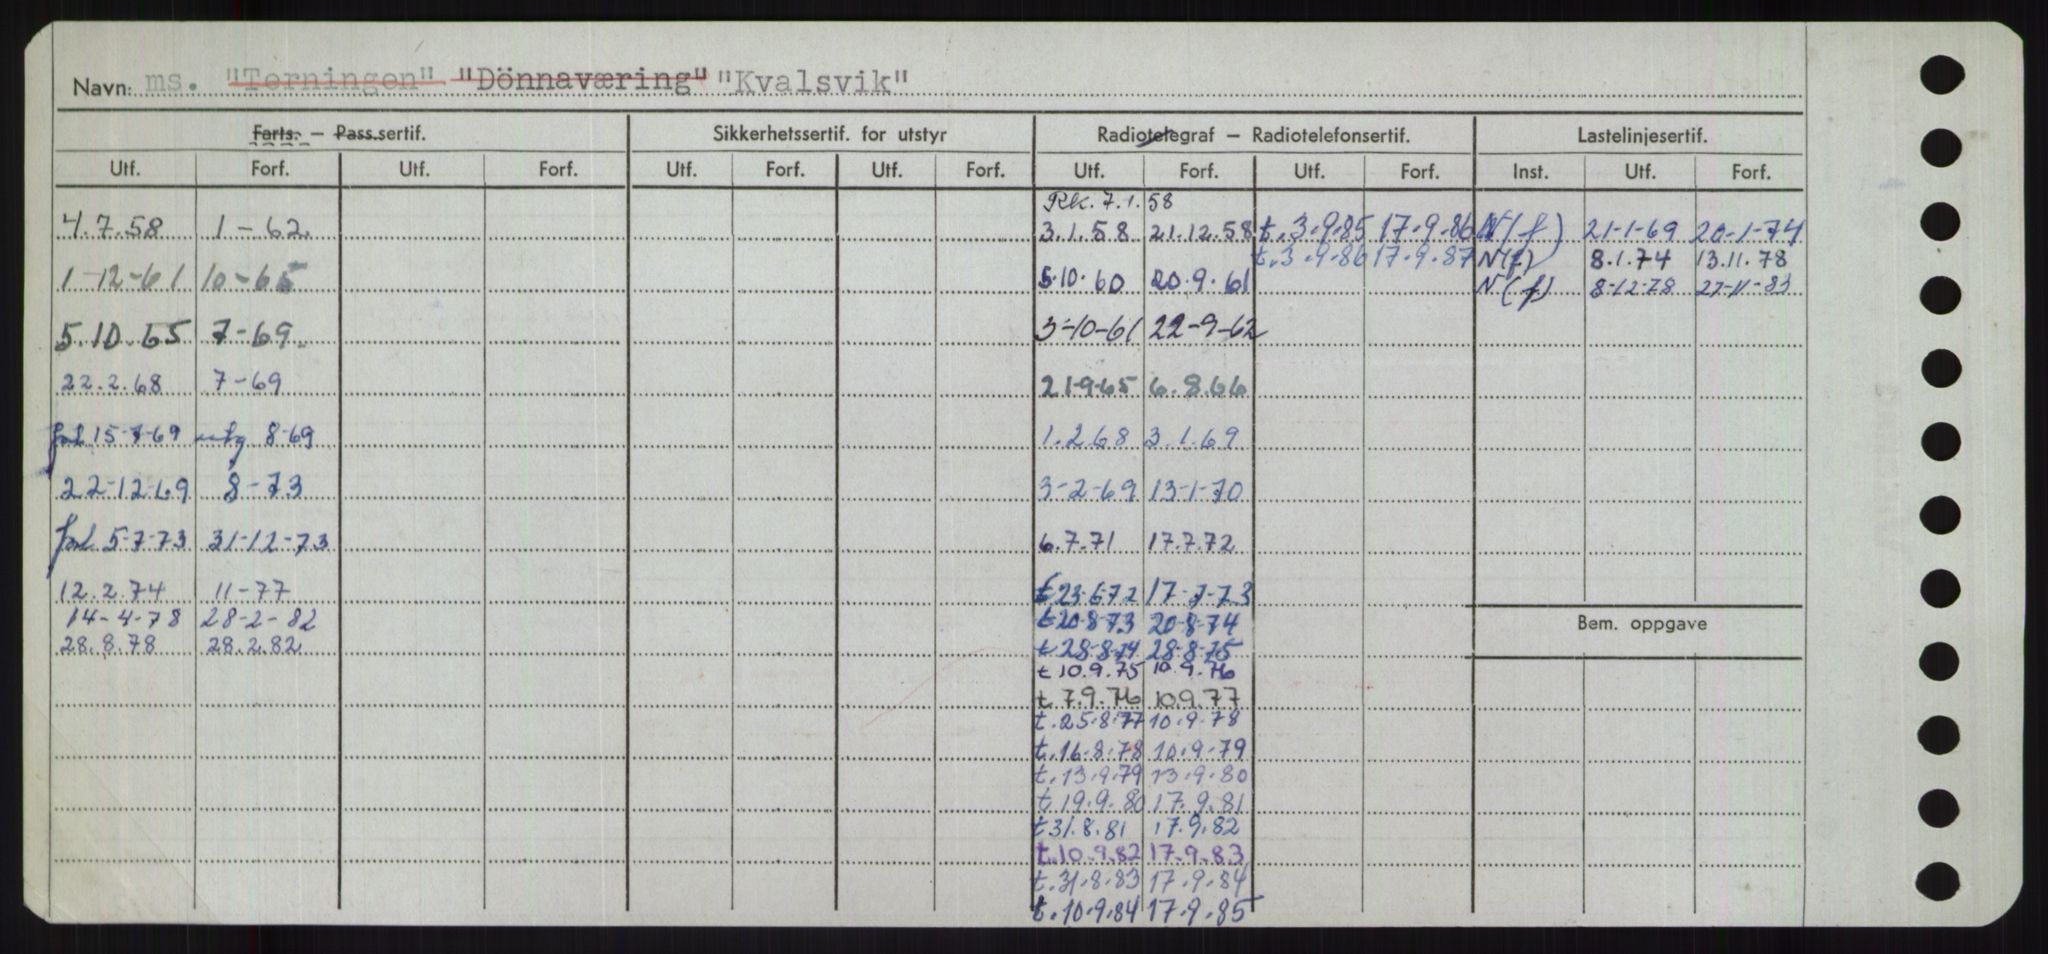 Navn: ms. "Torningen" "Dönnaværing" "Kvalsvik"
Farts. - Pass.sertif. Sikkerhetssertif. for utstyr Radiotelegraf - Radiotelefonsertif. Lastelinjesertif.
Utf. Forf. Utf. Forf. Utf. Forf. Utf. Forf. Utf. Forf. Utf. Forf. Inst. Utf. Forf.
Rk. 7.1.58
4.7.58 1-62. 3.1.58 21.12.58 t.3.9.85 17.9.86 N(f) 21-1-69 20-1-74
t.3.9.86 17.9.87 N(f) 8.1.74 13.11.78
1-12-61 10-65 5.10.60 20.9.61 N(f) 8-12-78 27-11-83
5.10.65 7-69. 3-10-61 22-9-62
22.2.68 7-69 21-9-65 6.8.66
forl 15-7-69 utg 8-69 1.2.68 3.1.69
22-12-69 8-73 3-2-69 13-1-70
forl 5-7-73 31-12-73 6.7.71 17.7.72
12.2.74 11-77 t 23.6.72 17-7-73
14-4-78 28-2-82 t 20-8-73 20-8-74
28.8.78 28.2.82 t 28-8-74 28-8-75
Bem. oppgave
t 10.9.75 10.9.76
t 7.9.76 10.9.77
t.25.8.77 10.9.78
t.16.8.78 10.9.79
t.13.9.79 13.9.80
t.19.9.80 17.9.81
t 31.8.81 17.9.82
t.10.9.82 17.9.83
t.31.8.83 17.9.84
t.10.9.84 17.9.85